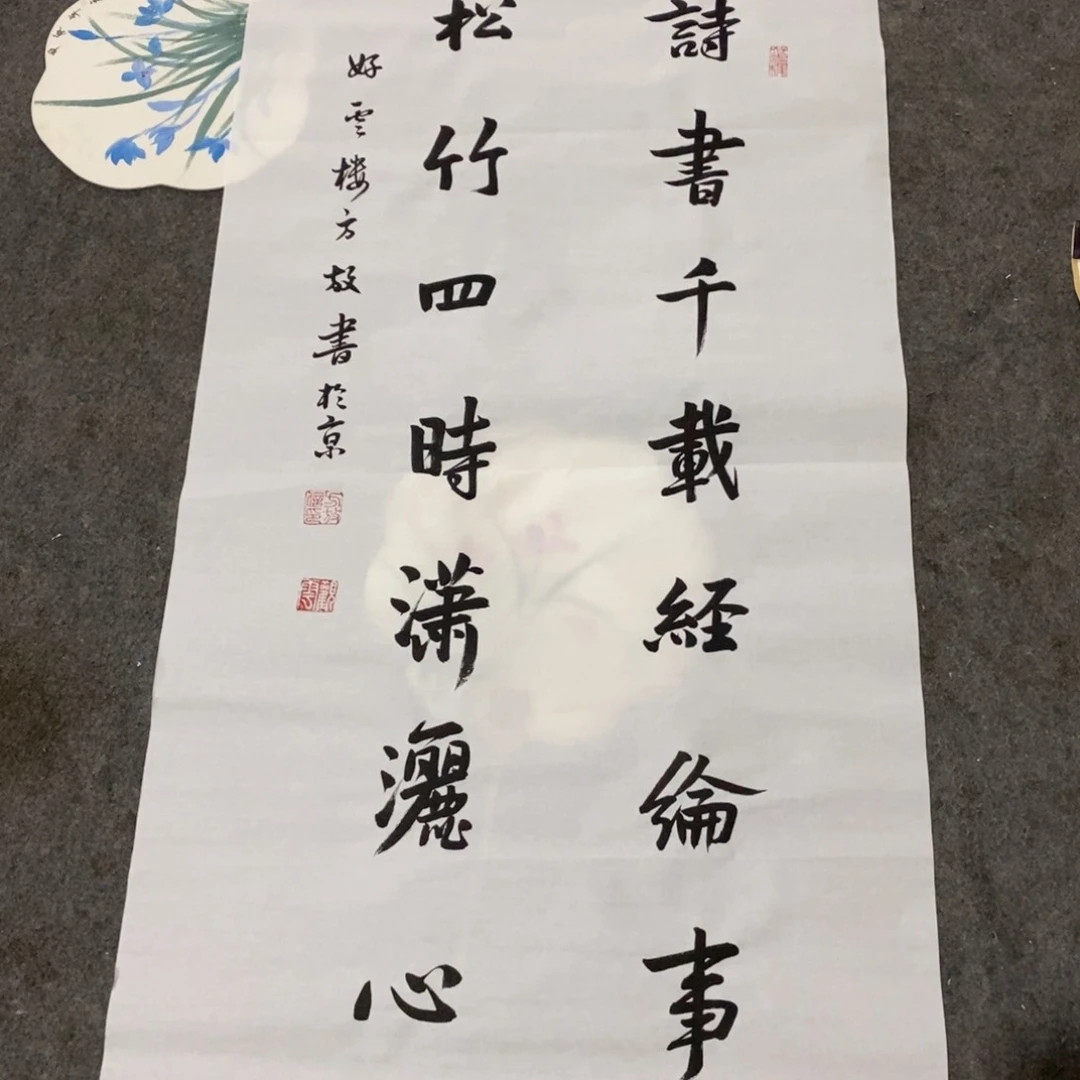 詩書千載経綸事
松竹四時瀟灑心
好雲楼方放書於京